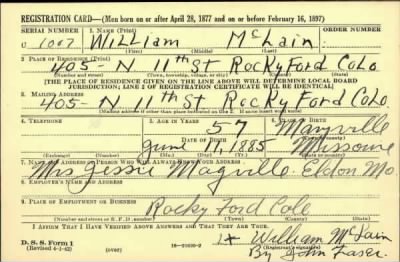 REGISTRATION CARD—(Men born on or after April 28, 1877 and on or before February 16, 1897)
SERIAL NUMBER 1. NAME (Print) ORDER NUMBER
U 1007 William McLain
(First) (Middle) (Last)
2. PLACE OF RESIDENCE (Print)
405-N 11th St Rocky Ford Colo
(Number and street) (Town, township, village, or city) (County) (State)
[THE PLACE OF RESIDENCE GIVEN ON THE LINE ABOVE WILL DETERMINE LOCAL BOARD
JURISDICTION; LINE 2 OF REGISTRATION CERTIFICATE WILL BE IDENTICAL]
3. MAILING ADDRESS
405-N 11th St Rocky Ford Colo.
4. TELEPHONE 5. AGE IN YEARS 6. PLACE OF BIRTH
57 Maryville
DATE OF BIRTH
June 1, 1885 Missouri
7. NAME AND ADDRESS OF PERSON WHO WILL ALWAYS KNOW YOUR ADDRESS
Mrs Jessie Magville Eldon Mo.
8. EMPLOYER'S NAME AND ADDRESS
9. PLACE OF EMPLOYMENT OR BUSINESS
Rocky Ford Colo
(Number and street or R. F. D. number) (Town) (County) (State)
I AFFIRM THAT I HAVE VERIFIED ABOVE ANSWERS AND THAT THEY ARE TRUE.
D. S. S. Form 1 William McLain
(Revised 4-1-42) (over) (Registrant's signature)
By John Fraser